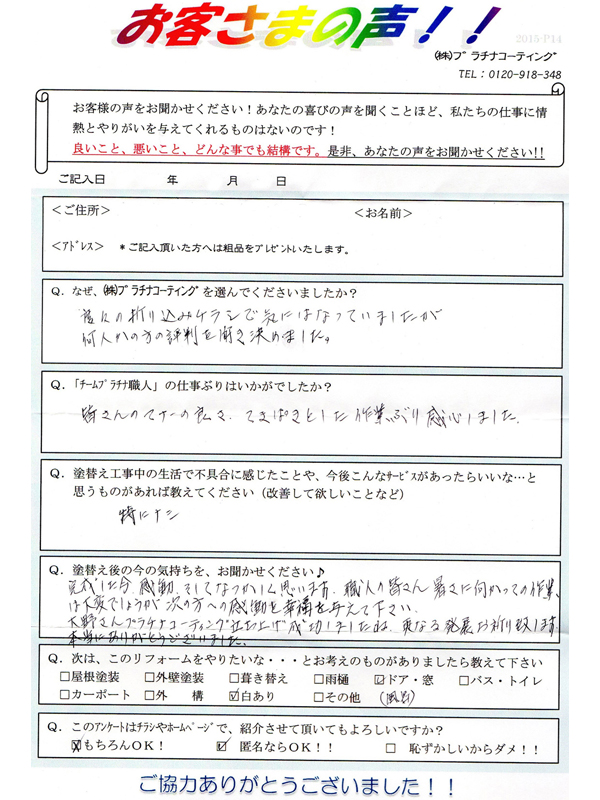 お客さまの声！！
2015-P14
(株)プラチナコーティング
TEL：0120-918-348
お客様の声をお聞かせください！あなたの喜びの声を聞くことほど、私たちの仕事に情
熱とやりがいを与えてくれるものはないのです！
良いこと、悪いこと、どんな事でも結構です。是非、あなたの声をお聞かせください!!
ご記入日　年　月　日
＜ご住所＞　＜お名前＞
＜アドレス＞　＊ご記入頂いた方へは粗品をプレゼントいたします。
Q．なぜ、(株)プラチナコーティングを選んでくださいましたか？
度々の折り込みチラシで気にはなっていましたが
何人かの方の評判を聞き決めました。
Q．「チームプラチナ職人」の仕事ぶりはいかがでしたか？
皆さんのマナーの良さ、てきぱきとした作業ぶり感心しました。
Q．塗替え工事中の生活で不具合に感じたことや、今後こんなサービスがあったらいいな…と
思うものがあれば教えてください（改善して欲しいことなど）
特にナシ
Q．塗替え後の今の気持ちを、お聞かせください♪
完成した今、感動、そしてなつかしく思います。職人の皆さん暑さに向かっての作業、
は大変でしょうが次の方への感動を幸福を与えて下さい。
大野さんプラチナコーティング立ち上げ成功しましたね。更なる発展お祈り致します
本当にありがとうございました。
Q．次は、このリフォームをやりたいな・・・とお考えのものがありましたら教えて下さい
□屋根塗装　□外壁塗装　□葺き替え　□雨樋　☑ドア・窓　□バス・トイレ
□カーポート　□外　構　☑白あり　□その他　(風呂)
Q．このアンケートはチラシやホームページで、紹介させて頂いてもよろしいですか？
☒もちろんOK！　☑匿名ならOK！！　□恥ずかしいからダメ！！
ご協力ありがとうございました！！